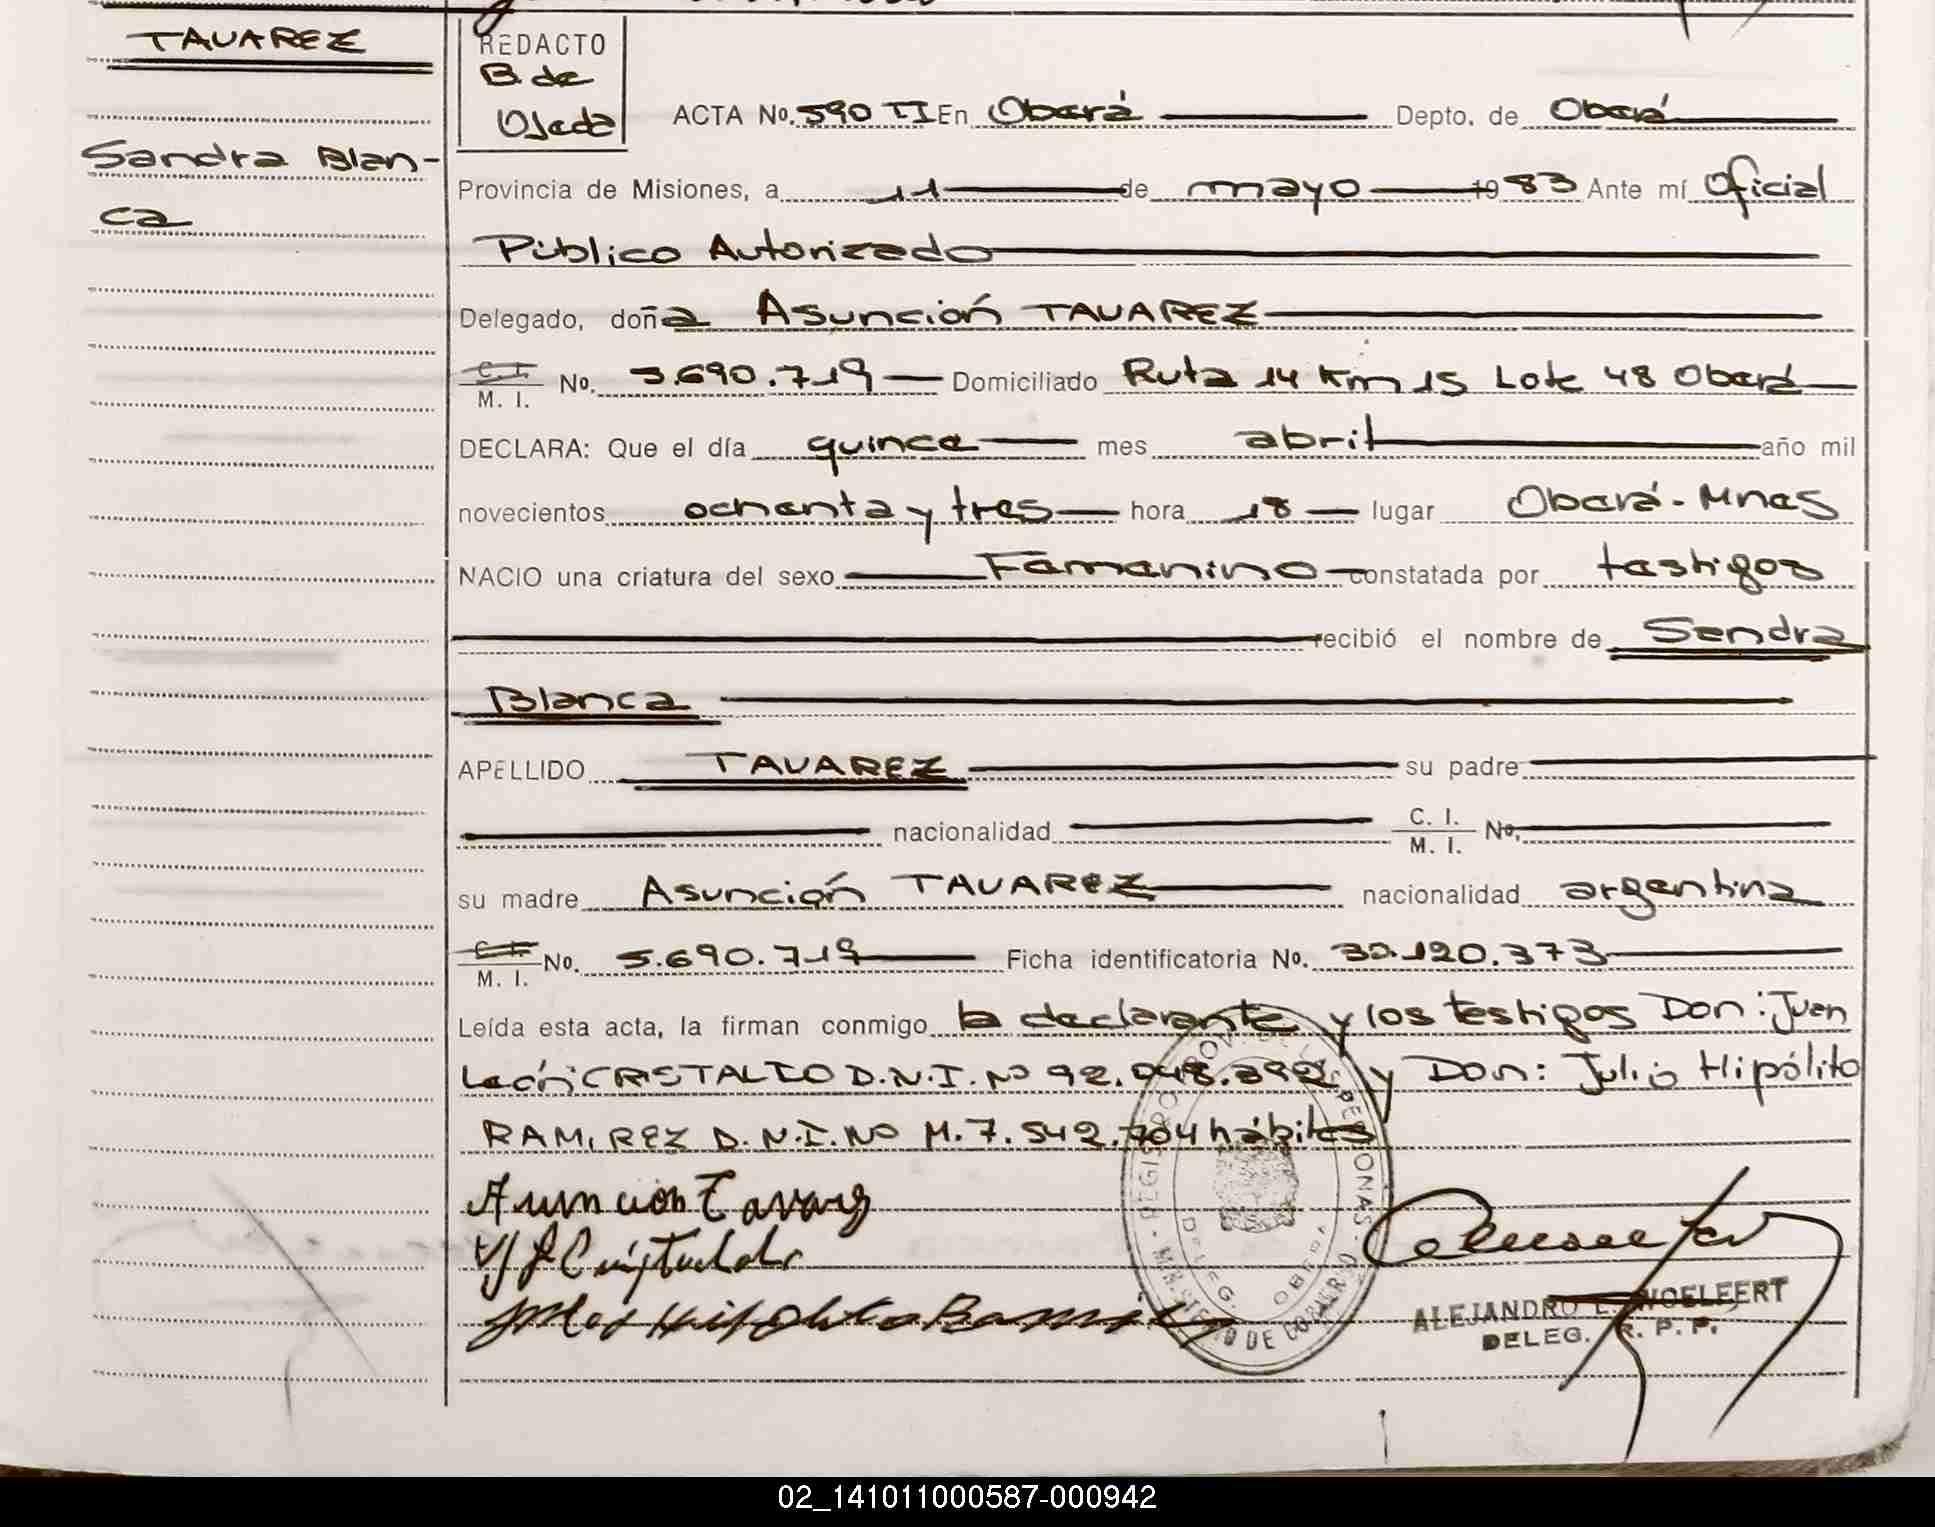 TAVAREZ
Sandra Blan-
ca
REDACTO
B. de
Ojeda
ACTA No. 590 TI En Oberá Depto. de Oberá
Provincia de Misiones, a 11 de mayo 1983 Ante mí Oficial
Público Autorizado
Delegado, doña Asunción TAVAREZ
C. I.
M. I. No. 5.690.719 Domiciliado Ruta 14 Km 15 Lote 48 Oberá
DECLARA: Que el día quince mes abril año mil
novecientos ochenta y tres hora 18 lugar Oberá - Mnes
NACIO una criatura del sexo Femenino constatada por testigos
recibió el nombre de Sandra
Blanca
APELLIDO TAVAREZ su padre
nacionalidad C. I.
M. I. No.
su madre Asunción TAVAREZ nacionalidad argentina
C. I.
M. I. No. 5.690.719 Ficha identificatoria No. 30.120.373
Leída esta acta, la firman conmigo la declarante y los testigos Don: Juan
León CRISTALDO D.N.I. No 92.048.392 y Don: Julio Hipólito
RAMIREZ D.N.I. No M.7.542.704 hábiles
Asuncion Tavarez
Julio Hipolito Ramirez
REGISTRO PROV. DE LAS PERSONAS
MINISTERIO DE GOBIERNO
DELEG. OBERA
ALEJANDRO E. WOELFERT
DELEG. R. P. P.
02_141011000587-000942